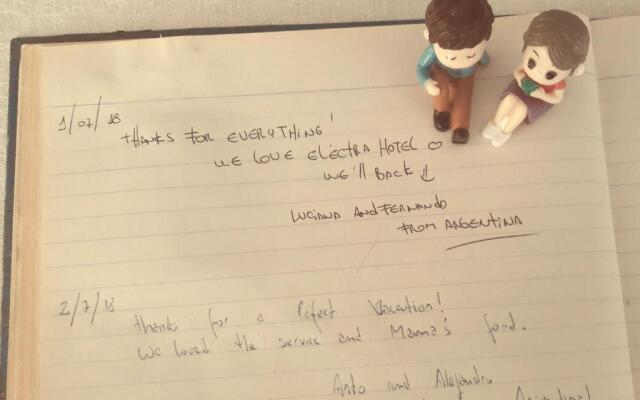 1/07/18
THANKS FOR EVERYTHING!
WE LOVE ELECTRA HOTEL ♡
WE'll BACK ↓
LUCIANA AND FERNANDO
FROM ARGENTINA
2/7/18
thanks for a Perfect Vacation!
We loved the service and Mamma's food.
Anto and Alejandro